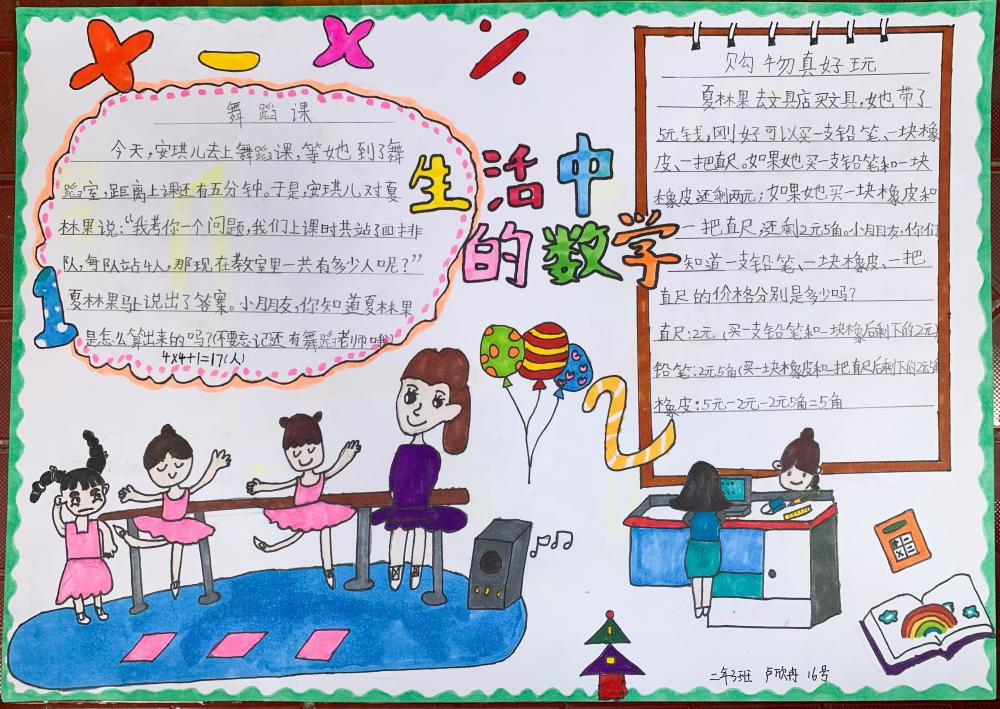 舞蹈课
今天,安琪儿去上舞蹈课,等她到了舞
蹈室,距离上课还有五分钟。于是,安琪儿对夏
林果说:“我考你一个问题,我们上课时共站了四排
队,每队站4人,那现在教室里一共有多少人呢?”
夏林果马上说出了答案。小朋友,你知道夏林果
是怎么算出来的吗?(不要忘记还有舞蹈老师哦!)
4×4+1=17(人)
1
生活中
的数学
2
购物真好玩
夏林果去文具店买文具,她带了
5元钱,刚好可以买一支铅笔、一块橡
皮、一把直尺。如果她买一支铅笔和一块
橡皮还剩两元;如果她买一块橡皮和
一把直尺,还剩2元5角。小朋友,你们
知道一支铅笔、一块橡皮、一把
直尺的价格分别是多少吗?
直尺:2元(买一支铅笔和一块橡皮后剩下的2元)
铅笔:2元5角(买一块橡皮和一把直尺后剩下的2元5角)
橡皮:5元-2元-2元5角=5角
二年3班 卢欣冉 16号